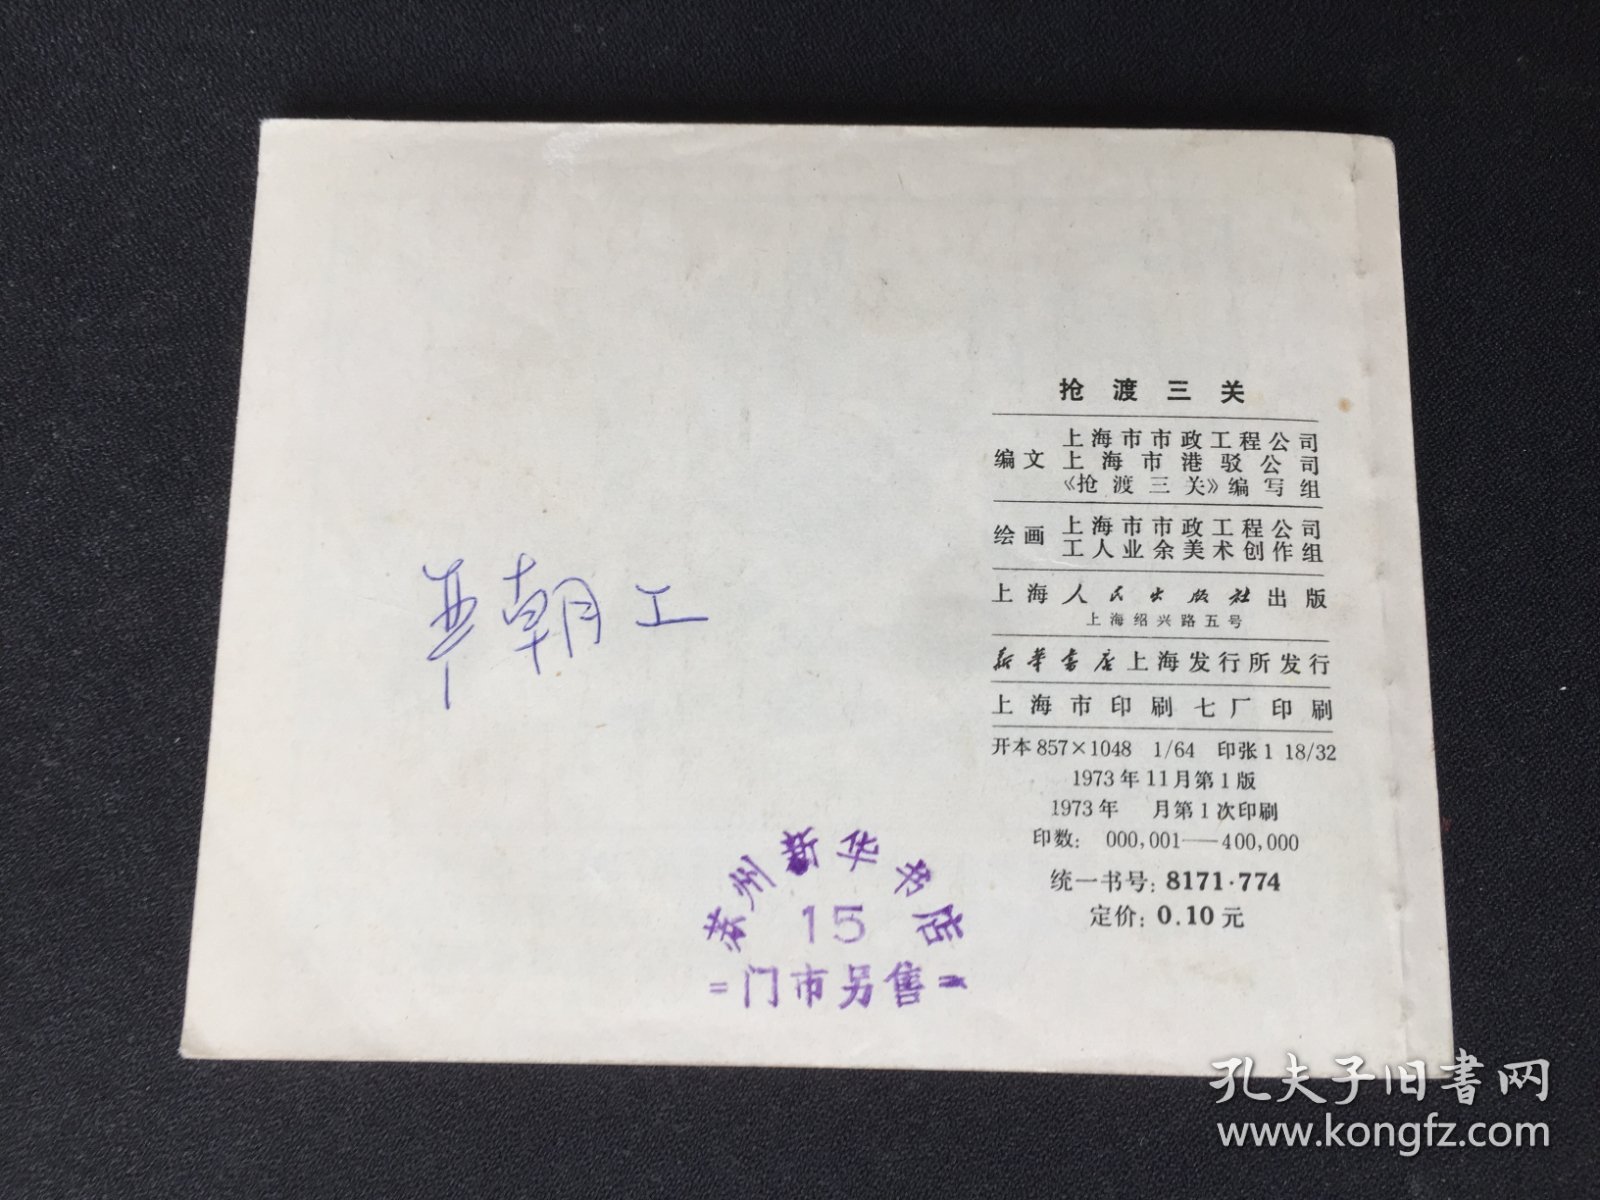 抢渡三关
编文 上海市市政工程公司
上海市港驳公司
《抢渡三关》编写组
绘画 上海市市政工程公司
工人业余美术创作组
上海人民出版社出版
上海绍兴路五号
新华书店上海发行所发行
上海市印刷七厂印刷
开本 857×1048 1/64 印张 1 18/32
1973年11月第1版
1973年 月第1次印刷
印数: 000,001——400,000
统一书号: 8171·774
定价: 0.10元
朝工
苏州新华书店
15
=门市另售=
孔夫子旧书网
www.kongfz.com